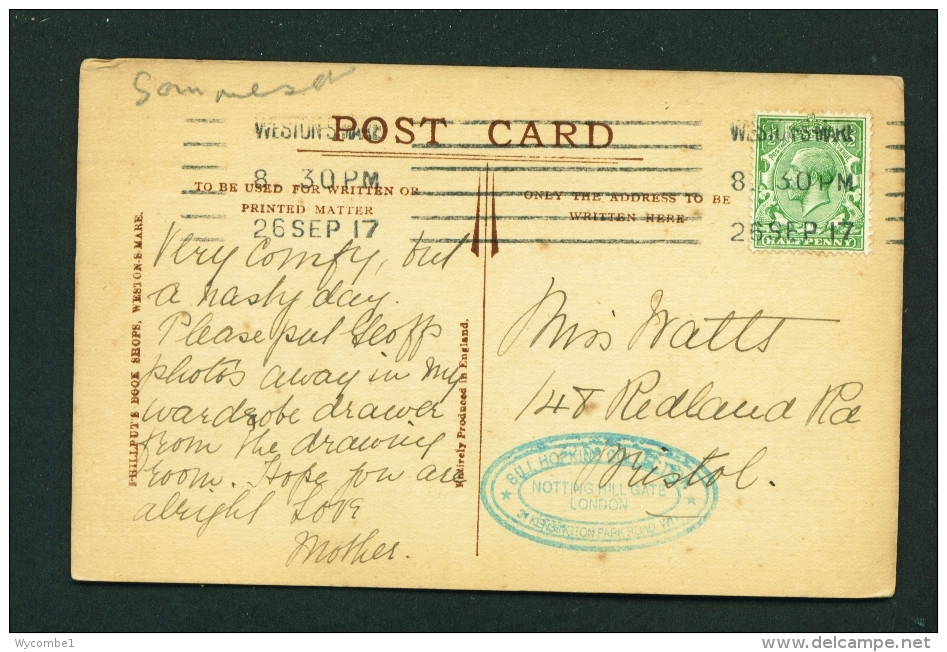 Somerset
POST CARD
WESTON-S-MARE
8. 30 PM
26 SEP 17
WESTON-S-MARE
8. 30 PM
26 SEP 17
HALFPENNY
TO BE USED FOR WRITTEN OR
PRINTED MATTER
ONLY THE ADDRESS TO BE
WRITTEN HERE
PHILLPUT'S BOOK SHOPS, WESTON-S-MARE.
Entirely Produced in England.
Very comfy, but
a nasty day.
Please put Geoff's
photos away in my
wardrobe drawer
from the drawing
room. Hope you are
alright Love
Mother.
Miss Watts
148 Redland Rd
Bristol.
BILL HOPKINS
NOTTING HILL GATE
LONDON
KENSINGTON PARK ROAD
Wycombe1
www.delcampe.net